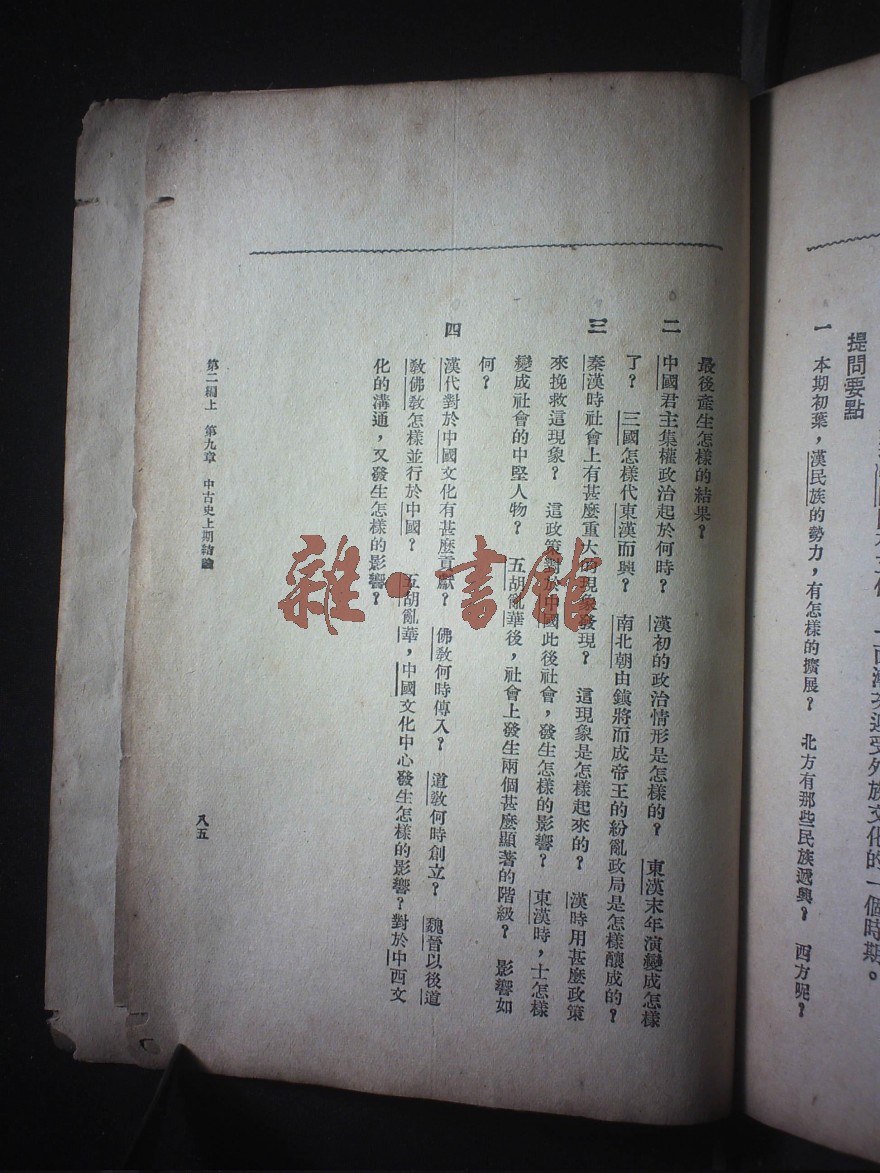 化的一個時期。
提問要點
一 本期初葉，漢民族的勢力，有怎樣的擴展？ 北方有那些民族遞興？ 西方呢？
最後產生怎樣的結果？
二 中國君主集權政治起於何時？ 漢初的政治情形是怎樣的？ 東漢末年演變成怎樣
了？ 三國怎樣代東漢而興？ 南北朝由鎮將而成帝王的紛亂政局是怎樣釀成的？
三 秦漢時社會上有甚麼重大的現象發現？ 這現象是怎樣起來的？ 漢時用甚麼政策
來挽救這現象？ 這政策對於中國此後社會，發生怎樣的影響？ 東漢時，士怎樣
變成社會的中堅人物？ 五胡亂華後，社會上發生兩個甚麼顯著的階級？ 影響如
何？
四 漢代對於中國文化有甚麼貢獻？ 佛教何時傳入？ 道教何時創立？ 魏晉以後道
教佛教怎樣並行於中國？ 五胡亂華，中國文化中心發生怎樣的影響？對於中西文
化的溝通，又發生怎樣的影響？
第二編上 第九章 中古史上期結論
八五
雜·書館